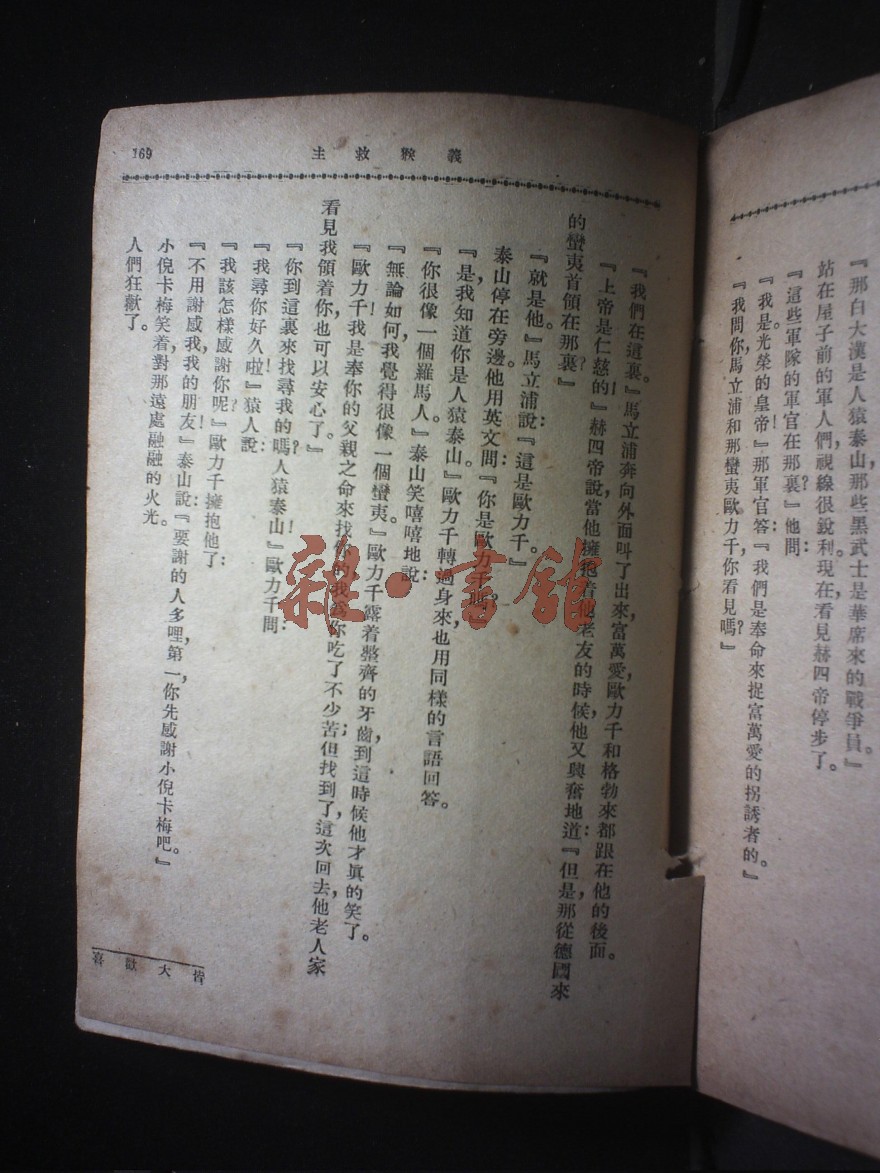 『那白大漢是人猿泰山，那些黑武士是華席來的戰爭員。』
站在屋子前的軍人們，視線很銳利，現在看見赫四帝停步了。
『這些軍隊的軍官在那裏？』他問：
『我是光榮的皇帝！』那軍官答：『我們是奉命來捉富萬愛的拐誘者的。』
『我問你，馬立浦和那蠻夷歐力千，你看見嗎？』
169
義猴救主
『我們在這裏。』馬立浦奔向外面叫了出來，富萬愛，歐力千和格勃來都跟在他的後面。
『上帝是仁慈的！』赫四帝說，當他擁抱着他老友的時候，他又興奮地道：『但是那從德國來
的蠻夷首領在那裏？』
『就是他，』馬立浦說：『這是歐力千。』
泰山停在旁邊，他用英文問：『你是歐力千嗎？』
『是，我知道你是人猿泰山。』歐力千轉過身來，也用同樣的言語回答。
『你很像一個羅馬人。』泰山笑嘻嘻地說：
『無論如何，我覺得很像一個蠻夷。』歐力千露着整齊的牙齒，到這時候，他才眞的笑了。
『歐力千！我是奉你的父親之命來找你的，我爲你吃了不少苦；但找到了，這次回去，他老人家
看見我領着你，也可以安心了。』
『你到這裏來找尋我的嗎？人猿泰山！』歐力千問：
『我尋你好久啦！』猿人說：
『我該怎樣感謝你呢？』歐力千擁抱他了：
『不用謝感我，我的朋友！』泰山說：『要謝的人多哩，第一，你先感謝小倪卡梅吧。』
小倪卡梅笑着，對那遠處融融的火光。
人們狂歡了。
皆大歡喜
雜·書館